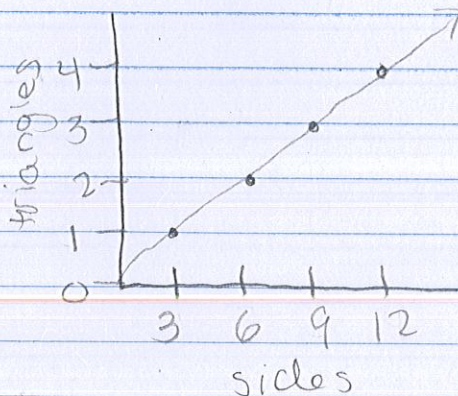 triangles
4
3
2
1
0
3 6 9 12
sides